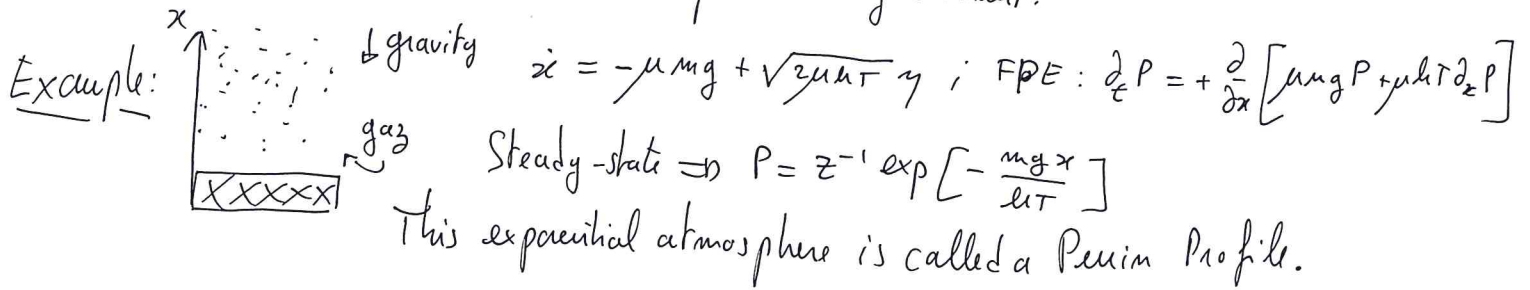 x
↓ gravity
Example: ẋ = -μmg + √2μkT η ; FPE : ∂_t P = + ∂/∂x [μmgP + μkT∂_x P]
gaz
Steady-state ⇒ P = Z⁻¹ exp[- mgx/kT]
XXXXX
This exponential atmosphere is called a Perrin Profile.